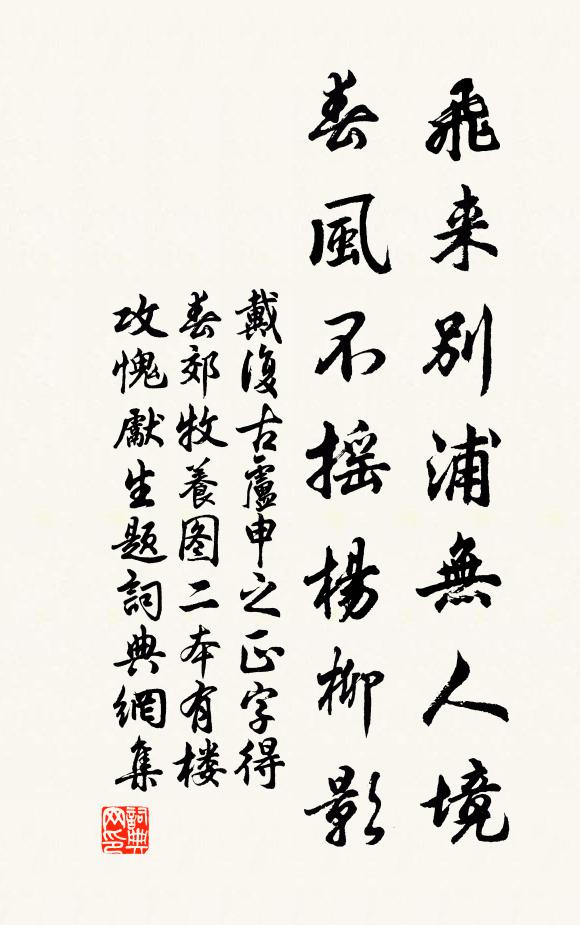 飛来别浦無人境
春風不摇楊柳影
戴復古廬申之正字得
春郊牧養图二本有楼
攻愧獻生題詞典網集
詞典网印